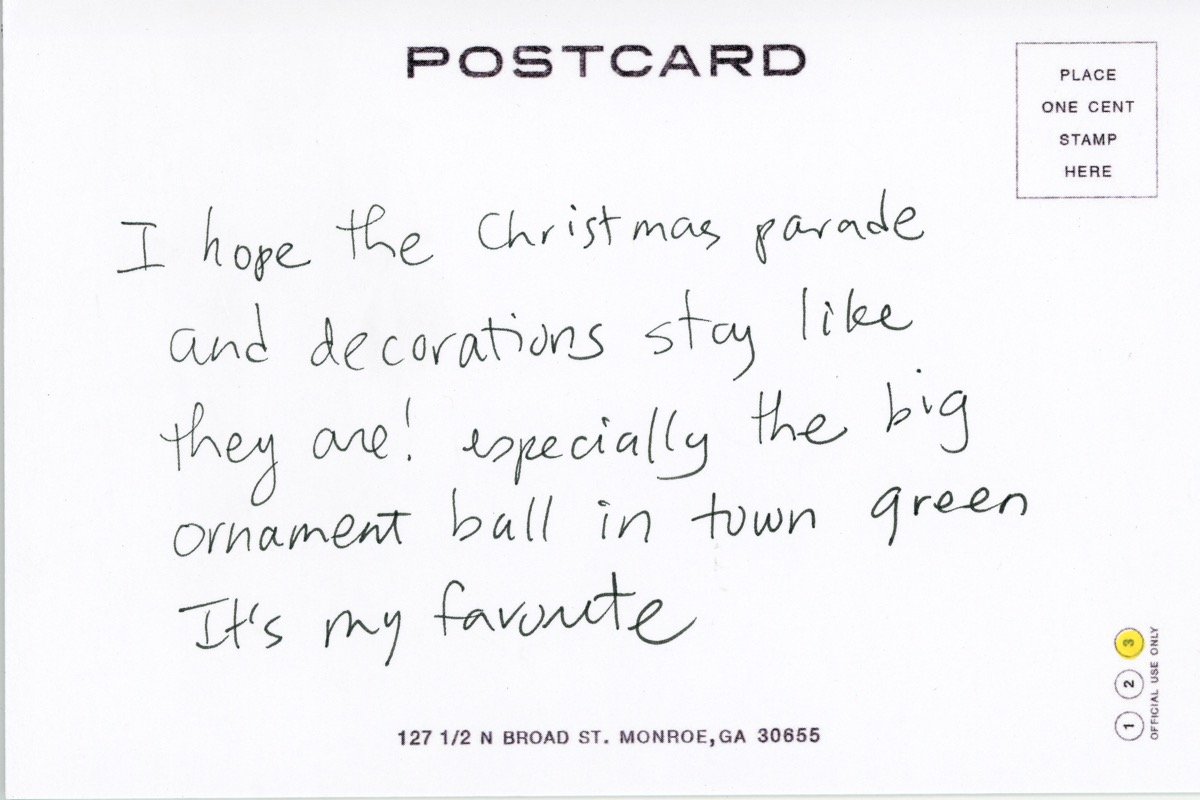 POSTCARD
PLACE
ONE CENT
STAMP
HERE
I hope the Christmas parade
and decorations stay like
they are! especially the big
ornament ball in town green
It's my favorite
127 1/2 N BROAD ST. MONROE, GA 30655
1 2 3
OFFICIAL USE ONLY